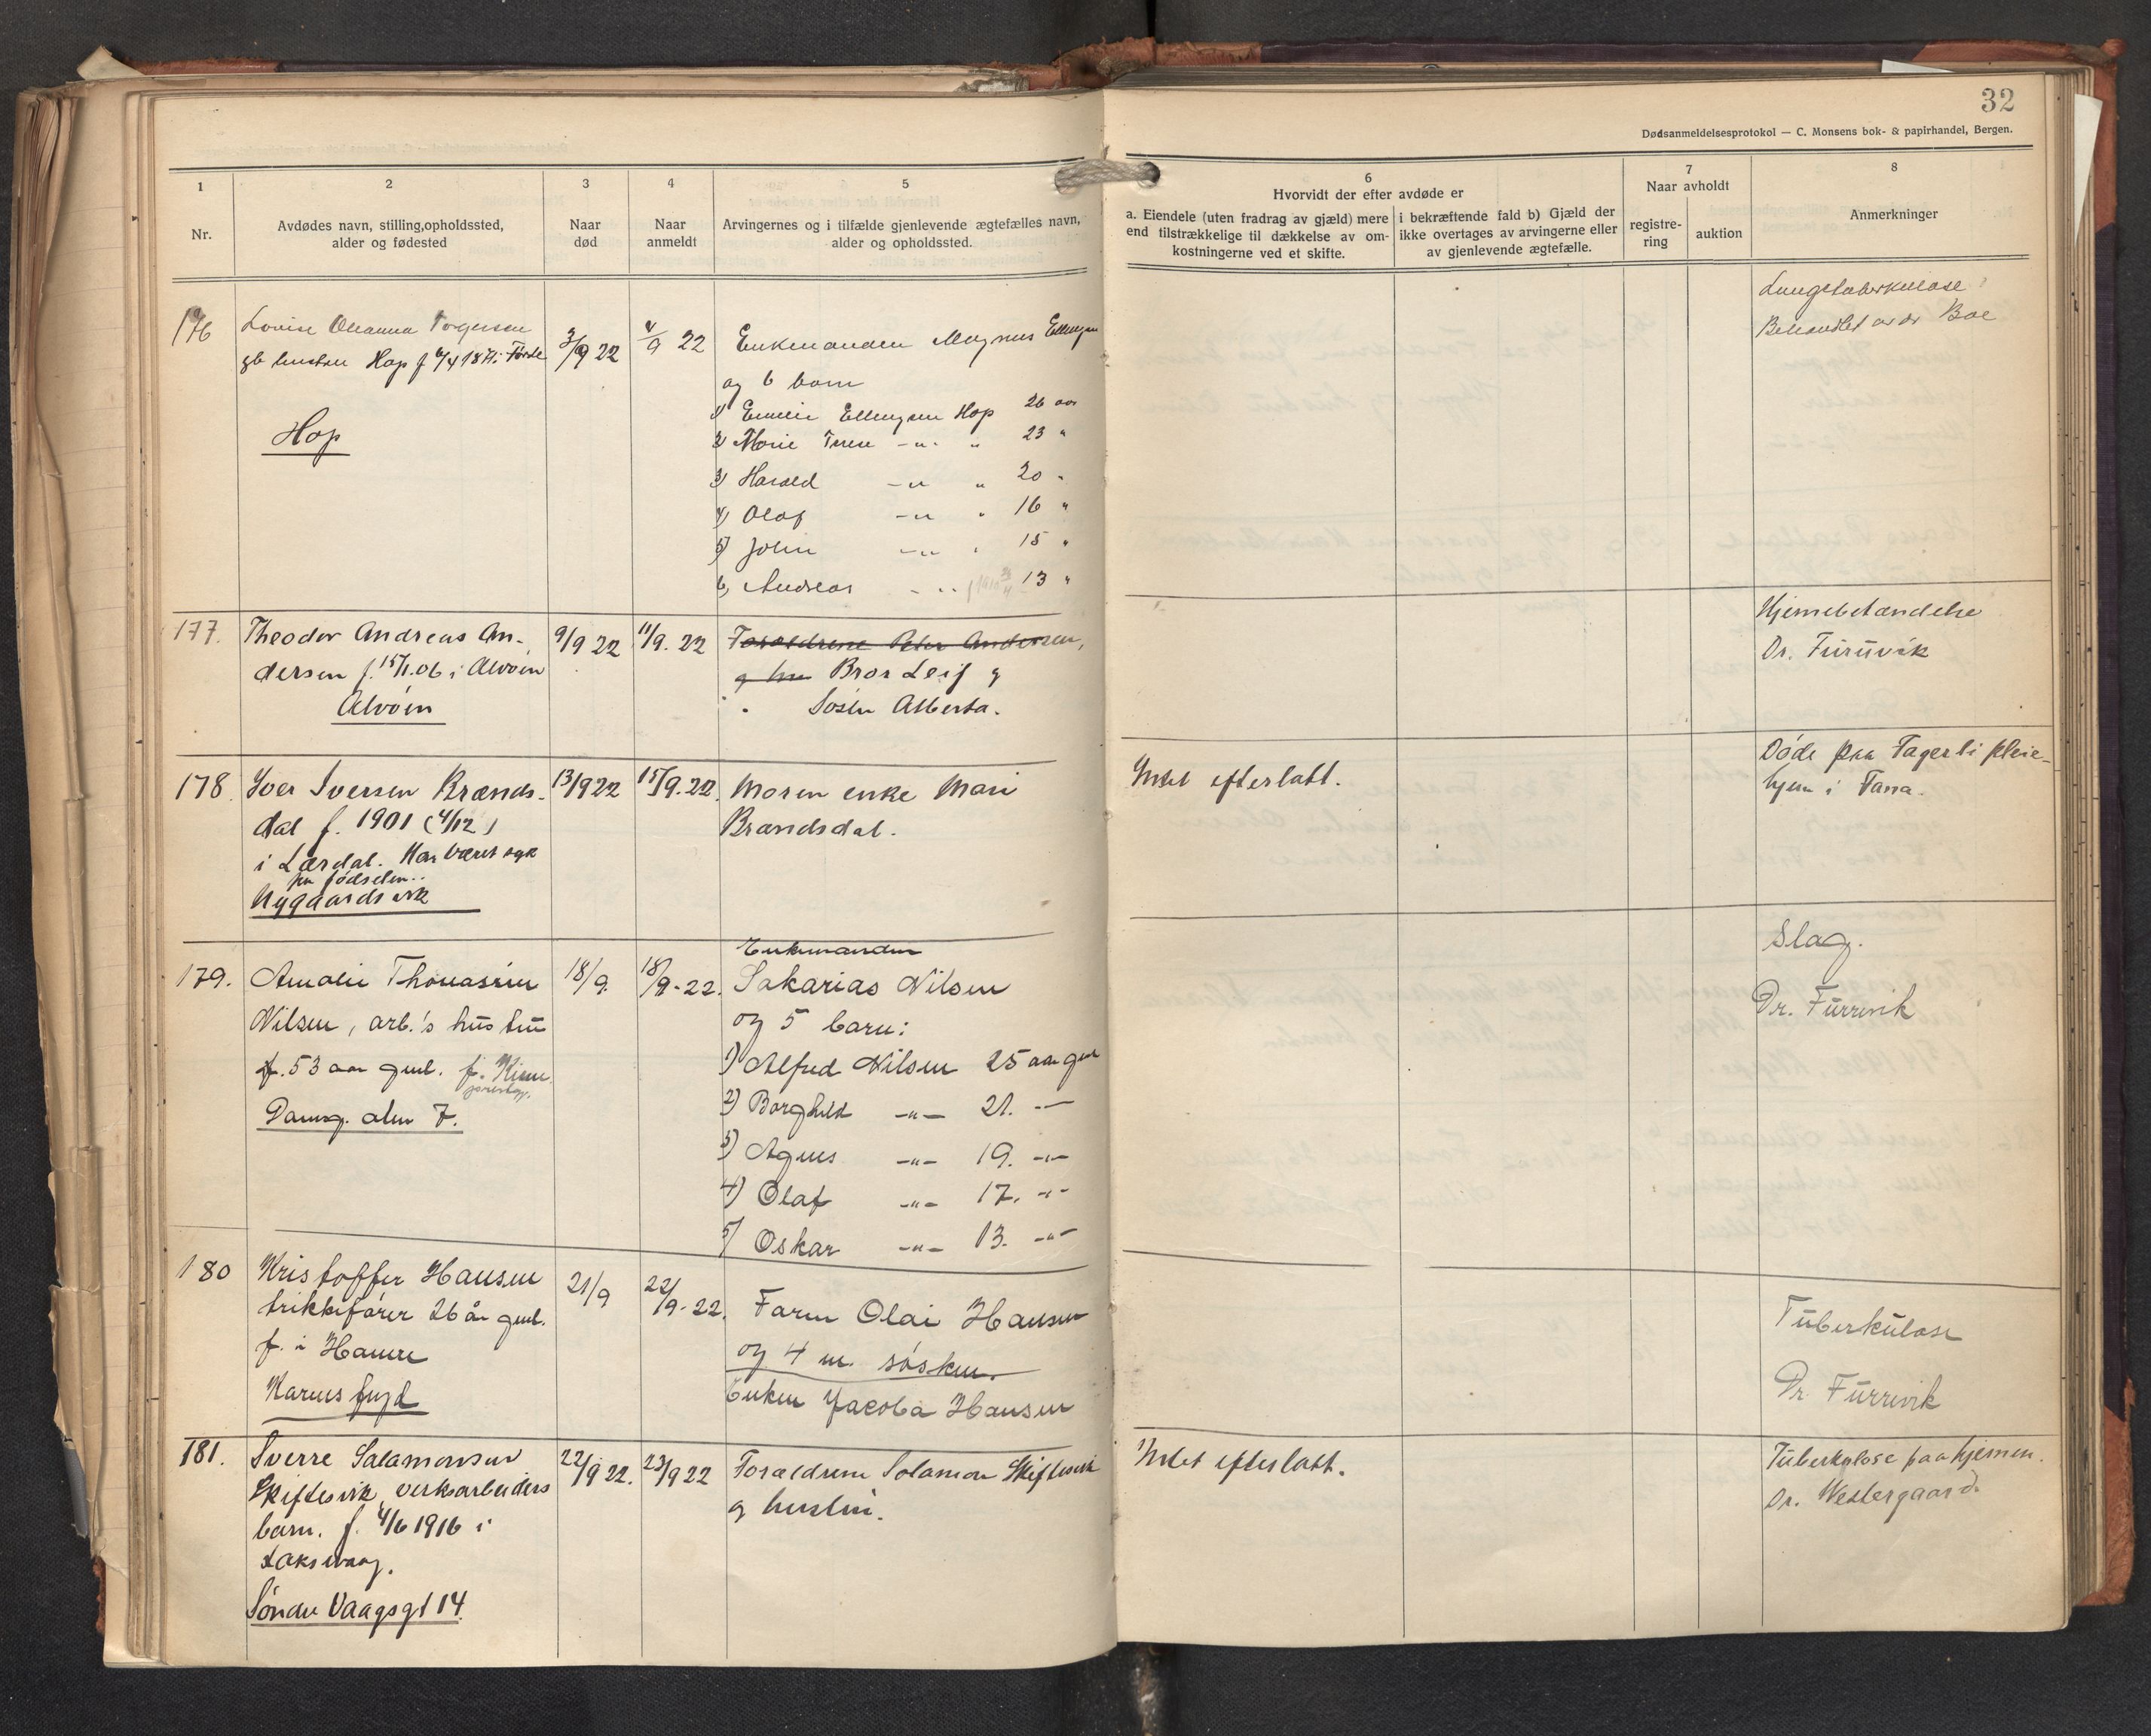 32
Dødsanmeldelsesprotokol — C. Monsens bok- & papirhandel, Bergen.
1
Nr.
2
Avdødes navn, stilling, opholdssted,
alder og fødested
3
Naar
død
4
Naar
anmeldt
5
Arvingernes og i tilfælde gjenlevende ægtefælles navn,
alder og opholdssted.
6
Hvorvidt der efter avdøde er
a. Eiendele (uten fradrag av gjæld) mere
end tilstrækkelige til dækkelse av om-
kostningerne ved et skifte.
i bekræftende fald b) Gjæld der
ikke overtages av arvingerne eller
av gjenlevende ægtefælle.
7
Naar avholdt
registre-
ring
auktion
8
Anmerkninger
176
Lovise Oleanna Torgersen
gb hustru Hop f 6/4 1871 i Førde
Hop
3/9 22
4/9 22
Enkemanden Magnus Ellingsen
og 6 barn
1) Emilie Ellingsen Hop 26 aar
2) Marie -"- " 23 "
3) Harald -"- " 20 "
4) Olaf -"- " 16 "
5) John -"- " 15 "
6) Andreas - " " 13 "
Lungetuberkulose
Behandlet av dr Boe
177.
Theodor Andreas An-
dersen f. 15/1.06 i Alvøen
Alvøen
9/9 22
11/9. 22
Forældrene Peter Andersen,
og hu Bror Leif og
Søster Alberta.
Hjernebetændelse
Dr. Furuvik
178.
Iver Iversen Brænds-
dal f. 1901 (4/12)
i Lærdal. Har været syk
fra fødselen..
Nygaardsvik
13/9 22
15/9. 22.
Moren enke Mari
Brændsdal.
Intet efterlatt.
Døde paa Fagerli pleie-
hjem i Fana.
179.
Amalie Thomasine
Nilsen, arb.'s hustru
f. 53 aar gml. f. Kinn
Damsg. alm 7.
18/9.
18/9-22.
Enkemanden
Sakarias Nilsen
og 5 barn:
1) Alfred Nilsen 25 aar gml
2) Borghild -"- 21. -"-
3) Agnes -"- 19. -"-
4) Olaf -"- 17. -"-
5) Oskar -"- 13. -"-
Slag.
Dr. Furrevik
180
Kristoffer Hansen
trikkefører 26 år gml.
f. i Hamre
21/9
22/9-22.
Faren Olai Hansen
og 4 m. søsken.
Enken Jacoba Hansen
Tuberkulose
Dr Furrevik
181.
Sverre Salamonsen
Skiftesvik, verksarbeiders
barn. f. 4/6 1916 i
Laksevaag.
Søndre Vaagsgt 14
22/9 22.
23/9 22
Forældrene Solamon Skiftesvik
og hustru.
Intet efterlatt.
Tuberkulose paa hjernen.
Dr. Westergaard.